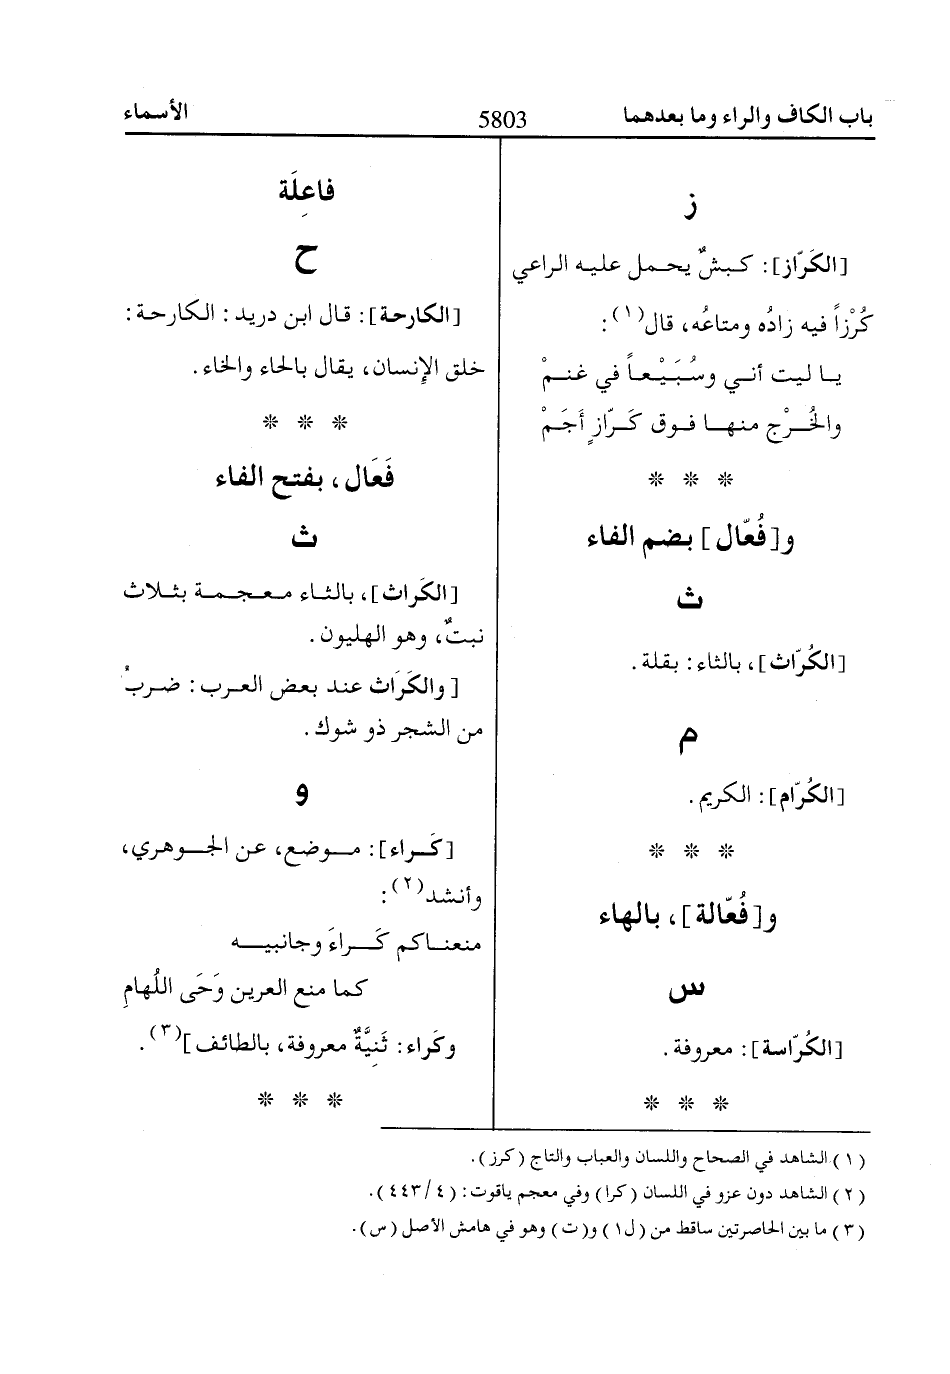 باب الكاف والراء وما بعدهما 5803 الأسماء
ز
[الكَرّاز]: كبشٌ يحمل عليه الراعي
كُرْزاً فيه زادُه ومتاعُه، قال(١):
يا ليت أني وسُبَيْعاً في غنمْ
والخُرْج منها فوق كَرّازٍ أَجَمْ
* * *
و[فُعّال] بضم الفاء
ث
[الكُرّاث]، بالثاء: بقلة.
م
[الكُرّام]: الكريم.
* * *
و[فُعّالة]، بالهاء
س
[الكُرّاسة]: معروفة.
* * *
فاعِلَة
ح
[الكارحة]: قال ابن دريد: الكارحة:
خلق الإنسان، يقال بالحاء والخاء.
* * *
فَعَال، بفتح الفاء
ث
[الكَراث]، بالثاء معجمة بثلاث
نبتٌ، وهو الهليون.
[والكَرَاث عند بعض العرب: ضربٌ
من الشجر ذو شوك.
و
[كَراء]: موضع، عن الجوهري،
وأنشد(٢):
منعناكم كَراءَ وجانبيه
كما منع العرين وَحَى اللُهامِ
وكَراء: ثَنِيَّةٌ معروفة، بالطائف](٣).
* * *
(١) الشاهد في الصحاح واللسان والعباب والتاج (كرز).
(٢) الشاهد دون عزو في اللسان (كرا) وفي معجم ياقوت: (٤/٤٤٣).
(٣) ما بين الحاصرتين ساقط من (ل١) و(ت) وهو في هامش الأصل (س).